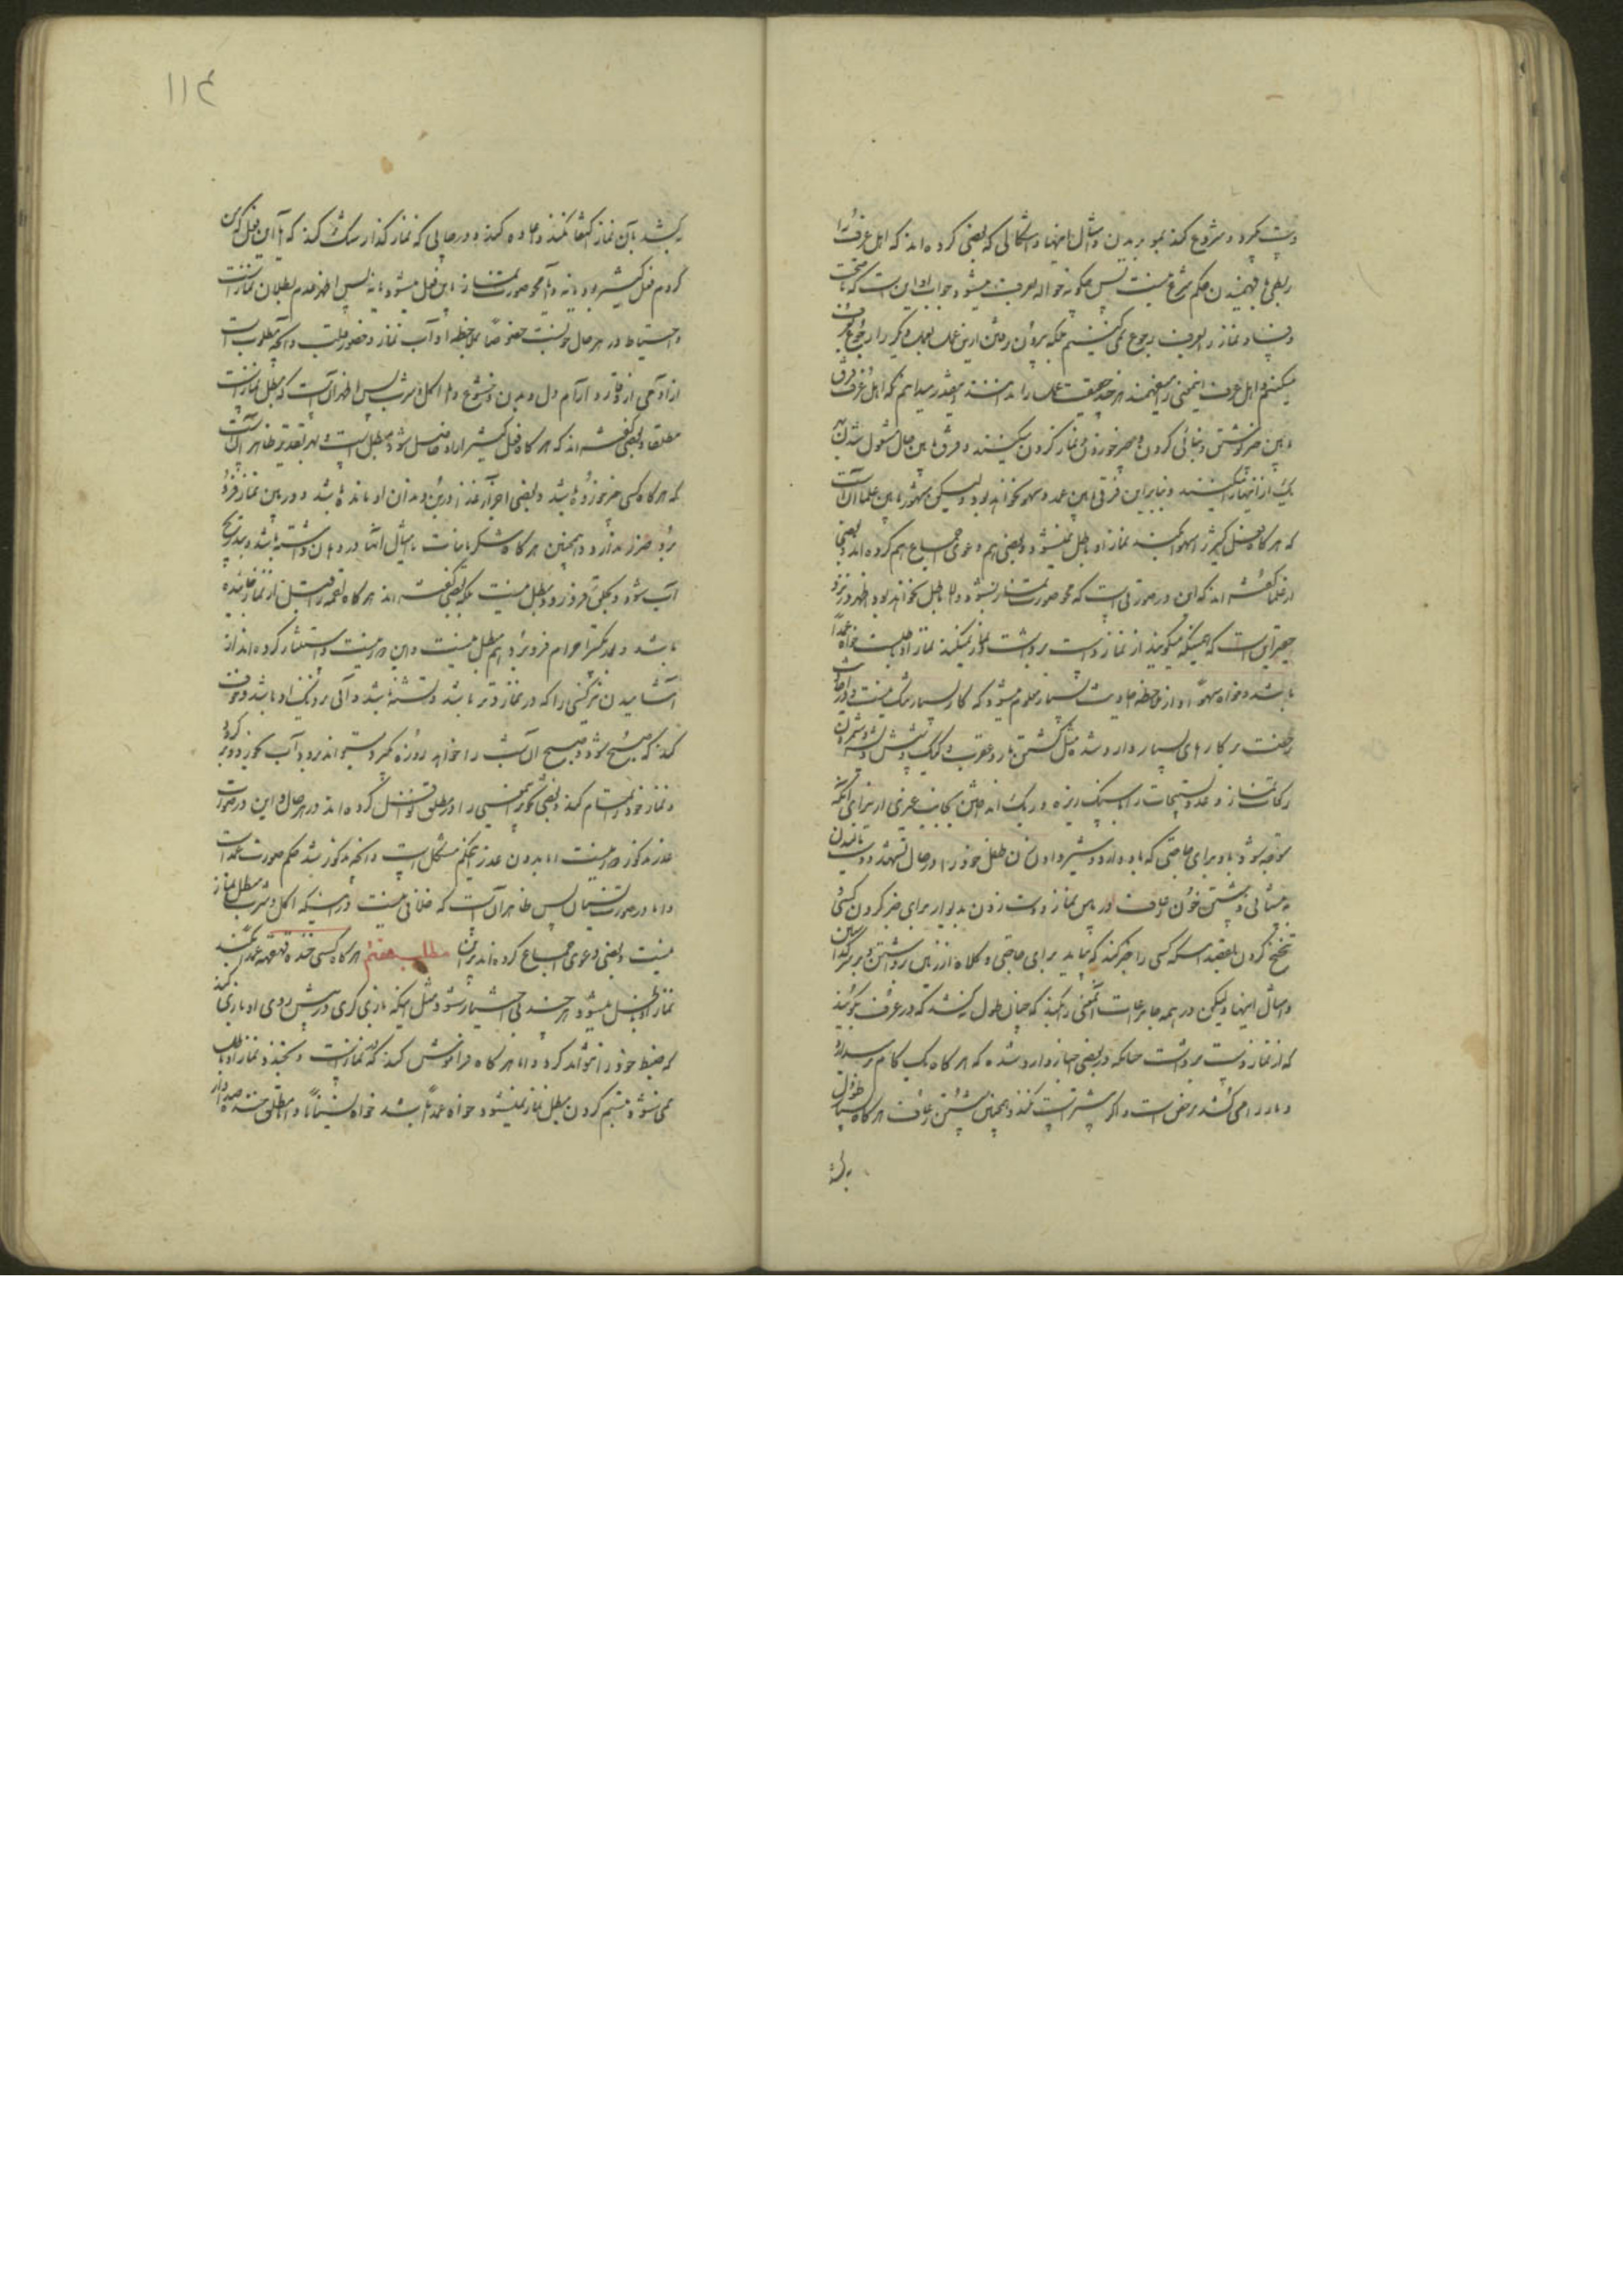 دست بگیرد و شروع کند ببوییدن و امثال اینها و اشکالی که بعضی کرده‌اند که اهل عرف را
ربطی بفهمیدن حکم شرع نیست پس چگونه حواله بعرف میشود جوابش این است که ما صحت
و فساد نماز را بعرف رجوع نمی‌کنیم بلکه بیرون رفتن از این عمل بعمل دیگر را رجوع بعرف
میکنیم و اهل عرف اینمعنی را میفهمند هر چند حقیقت عمل را ندانند اینقدر میدانیم که اهل عرف فرق
مابین خر گوشتن و بنائی کردن و چیز خوردن و نماز کردن میکنند و فرق مابین حال مشغول شدن به
یک از اینها را میکنند و بنابراین فرقی مابین عمد و سهو نخواهد بود ولیکن مشهور مابین علما آنست
که هرگاه فعل کثیر را سهوا بکند نماز او باطل نمیشود و بعضی هم دعوی اجماع هم کرده‌اند و بعضی
از علما گفته‌اند که این در صورتی است که محو صورت نماز نشود والا باطل خواهد بود و اظهر در نزد
حقیر این است که همینکه میگویند از نماز دست برداشت و نماز نمیکند نماز او باطلست خواه عمدا
باشد و خواه سهوا و از ملاحظه احادیث بسیار معلوم میشود که کار بسیار بد نیست و در احادیث
رخصت بر کارهای بسیار وارد شده مثل کشتن مار و عقرب و کیک و شپش و پشه و شمردن
رکعات نماز و عدد تسبیحات را با سنگ ریزه و ریگ انداختن بجانب غیری از برای آنکه
متوجه شود باو برای حاجتی که باو دارد و شیر دادن زن طفل خود را در حال تشهد و دست مالیدن
به پیشانی و شستن خون رعاف در مابین نماز و دست زدن بدیوار برای خبر کردن کسی و
تنحنح کردن بقصد اینکه کسی را خبر کند که بیاید برای حاجتی و کلاه از زمین برداشتن و بر سر گذاشتن
و امثال اینها ولیکن در همه جا مراعات اینمعنی را بکند که چنان طول نکشد که در عرف بگویند
که از نماز دست برداشت چنانکه در بعضی اخبار وارد شده که هرگاه بیک گام میرسد
و مار را میکشد مرخص است و اگر بیشتر است نکند و همچنین شستن رعاف هرگاه بسیار طول
بکشد
بکشد بآن نماز اکتفا نکند و اعاده کند و در جایی که نمازگذار شک کند که آیا این فعل که من
کردم فعل کثیر بود یا نه و آیا محو صورت نماز باین فعل میشود یا نه پس اظهر عدم بطلان نماز است
و احتیاط در هر حال خوبست خصوصا ملاحظه آداب نماز و حضور قلب و آنچه مطلوب است
از آدمی از وقار و آرام دل و بدن و خشوع و اما اکل و شرب پس اظهر آنست که مبطل نماز است
مطلقا و بعضی گفته‌اند که هرگاه فعل کثیر از او حاصل شود مبطل است و بهر تقدیر ظاهر آنست
که هرگاه کسی چیز خورده باشد و بعضی اجزاء غذا در بن دندان او مانده باشد و در مابین نماز فرو
برد ضرر ندارد و همچنین هرگاه شکر یا نبات یا امثال آنها در دهان داشته باشد و بتدریج
آب شود و بحلق فرو رود مبطل نیست بلکه بعضی گفته‌اند هرگاه لقمه را قبل از نماز خائیده
باشد و بعد تکبیر احرام فرو برد هم مبطل نیست و این دور نیست و استثنا کرده‌اند از
آشامیدن کسی را که در نماز وتر باشد و تشنه باشد و آبی نزدیک او باشد و خوف
کند که صبح شود و صبح آن شب را خواهد روزه گیرد میتواند برود و آب بخورد و برگردد
و نماز خود تمام کند و بعضی تجویز اینمعنی را در مطلق نوافل کرده‌اند در هر حال و این در صورت
عذر مذکور دور نیست اما بدون عذر حکم مشکل است و آنچه مذکور شد حکم صورت عمد است
و اما در صورت نسیان پس ظاهر آن است که خلافی نیست در اینکه اکل و شرب مبطل نماز
نیست و بعضی دعوی اجماع کرده‌اند بر آن مطلب هفتم هرگاه کسی خنده قهقهه عمدا بکند
نماز او باطل میشود هر چند بی اختیار شود مثل اینکه بازی گری در پیش روی او بازی کند
که ضبط خود را نتواند کرد و اما هرگاه فراموش کند که در نماز است و بخندد نماز او باطل
نمی‌شود و تبسم کردن مبطل نماز نمیشود خواه عمدا باشد خواه نسیانا و مطلق خنده صدادار